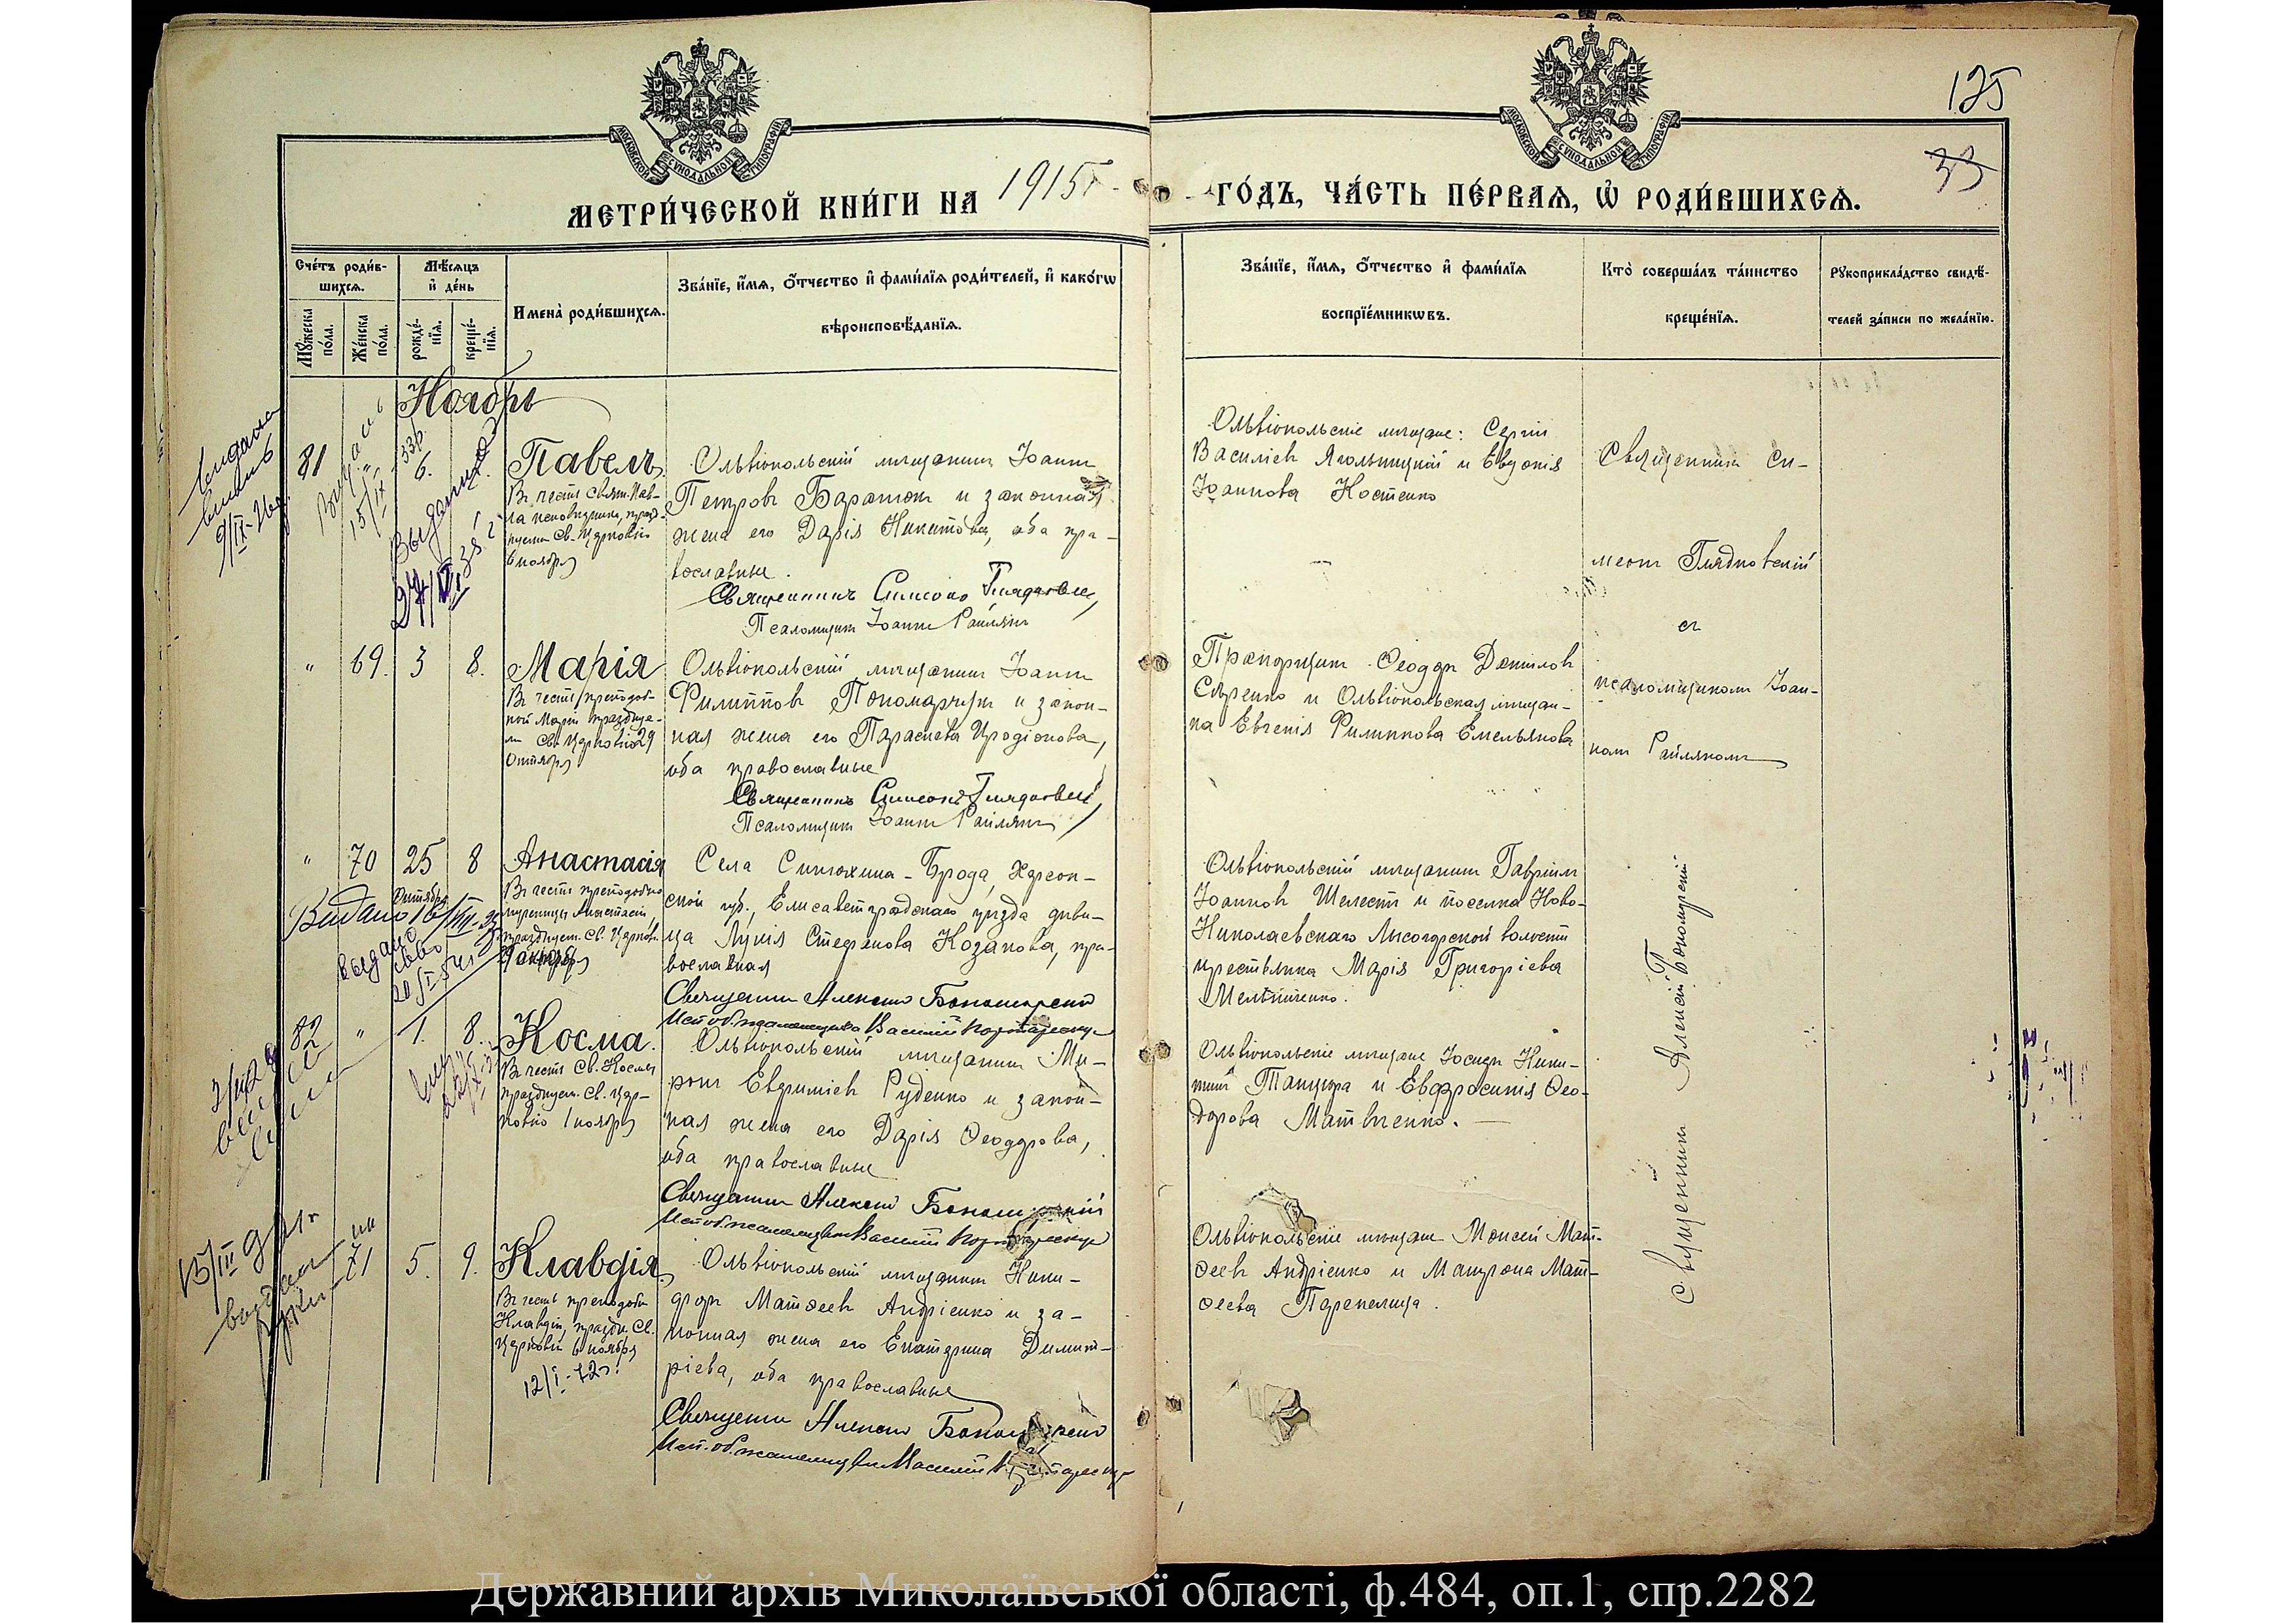 МОСКОВСКОЙ СѴНОДАЛЬНОЙ ТИПОГРАФІИ
МОСКОВСКОЙ СѴНОДАЛЬНОЙ ТИПОГРАФІИ
125
33
МЕТРИ́ЧЕСКОЙ КНИ́ГИ НА 1915 Г.
ГО́ДЪ, ЧА́СТЬ ПЕ́РВАѦ, Ѡ҆ РОДИ́ВШИХСѦ.
Сче́тъ роди́в-
шихсѧ.
Мꙋ́жеска по́ла.
Же́нска по́ла.
Мѣ́сѧцъ
и҆ де́нь
рожде́-
нїѧ.
креще́-
нїѧ.
Имена̀ роди́вшихсѧ.
Зва́нїе, и҆́мѧ, ѻ҆́тчество и҆ фами́лїѧ роди́телей, и҆ како́гѡ
вѣроисповѣ́данїѧ.
Зва́нїе, и҆́мѧ, ѻ҆́тчество и҆ фами́лїѧ
воспрїе́мникѡвъ.
Кто̀ соверша́лъ та́инство
креще́нїѧ.
Рꙋкоприкла́дство свидѣ́-
телей за́писи по жела́нїю.
Ноябрь
81
6.
Павелъ
Въ честь Свят. Пав-
ла исповѣдника, празд-
Св. Церковію
6 ноября
Ольвіопольскій мѣщанинъ Іоаннъ
Петровъ Баранюк и законная
жена его Дарія Никитова, оба пра-
вославные.
Священникъ Симеонъ Гляднов
Псаломщикъ Іоаннъ Райлянъ
Ольвіопольскіе мѣщане: Сергій
Василіевъ Ягольницкій и Евдокія
Іоаннова Костенко
Священникъ Си-
меонъ Глядковскій
съ
псаломщикомъ Іоан-
номъ Райляномъ
" 69. 3 8.
Марія
Въ честь преподоб-
ной Маріи празднуе-
м. Св. Церковію 29
Октября
Ольвіопольскій мѣщанинъ Іоаннъ
Филипповъ Пономарчукъ и закон-
ная жена его Параскева Иродіонова,
оба православные
Священникъ Симеонъ
Псаломщикъ Іоаннъ Райлянъ
Прапорщикъ Ѳеодоръ Даниловъ
Сѣренко и Ольвіопольская мѣщан-
ка Евгенія Филиппова Емельянова
" 70 25 8
Октября
Анастасія
Въ честь преподобно
мученицы Анастасіи,
празднуем. Св. Церков.
Села Синюхина-Брода, Херсон-
ской губ., Елисаветградскаго уѣзда дѣви-
ца Лукія Стефанова Козакова, пра-
вославная
Священникъ Алексій
Исп. об. псаломщика Василій
Ольвіопольскій мѣщанинъ Гавріилъ
Іоанновъ Шелестъ и поселка Ново-
Николаевскаго Лысогорской волости
крестьянка Марія Григоріева
Мельниченко.
82 " 1. 8.
Косма.
Въ честь Св. Космы
празднуем. Св. Цер-
ковію 1 ноября
Ольвіопольскій мѣщанинъ Ми-
ронъ Евфиміевъ Руденко и закон-
ная жена его Дарія Ѳеодорова,
оба православные
Священникъ Алексій
Исп. об. псаломщика Василій
Ольвіопольскіе мѣщане Іосифъ Ники-
тинъ Танцюра и Евфросинія Ѳео-
дорова Матвѣенко.
Священникъ Алексій
71 5. 9.
Клавдія.
Въ честь преподобн
Клавдіи, праздн. Св.
Церковію 6 ноября
12/I-72г.
Ольвіопольскій мѣщанинъ Ники-
форъ Матѳеевъ Андріенко и за-
конная жена его Екатерина Димит-
ріева, оба православные
Священникъ Алексій
Исп. об. псаломщика Василій
Ольвіопольскіе мѣщане Моисей Мат-
ѳеевъ Андріенко и Матрона Мат-
ѳеева Перепелица.
Державний архів Миколаївської області, ф.484, оп.1, спр.2282